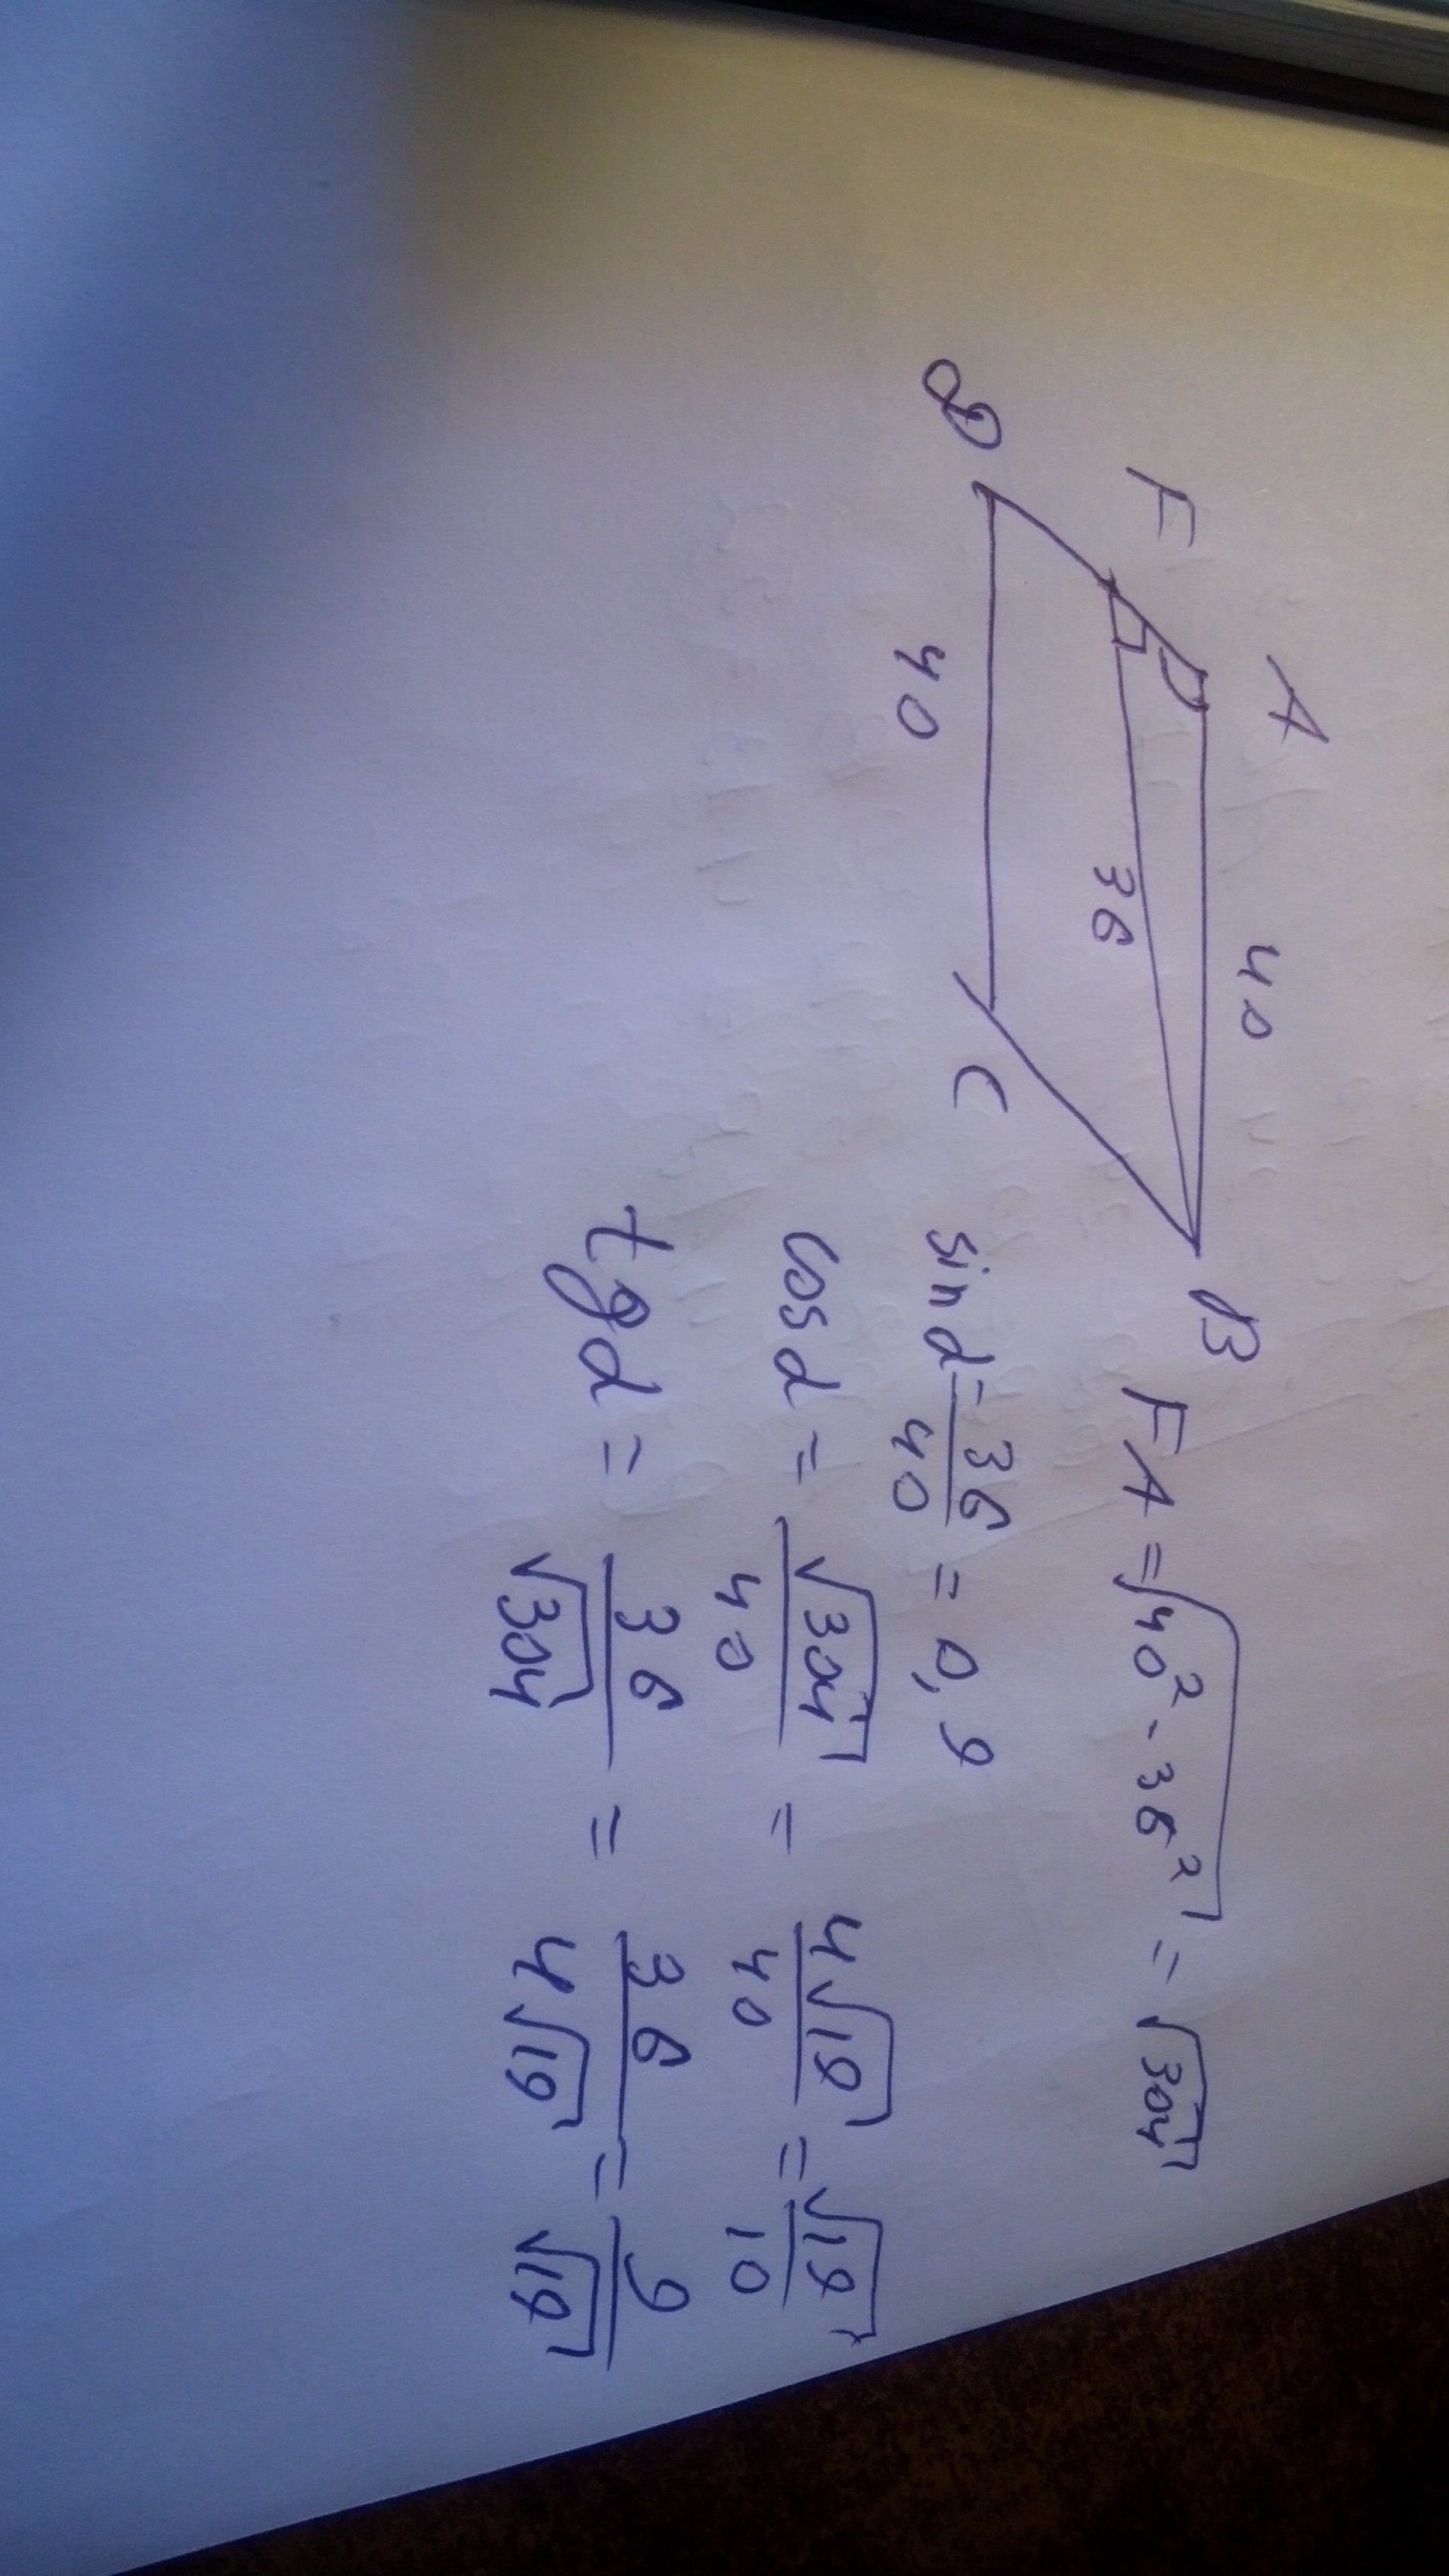 A 40 B
F 36
D 40 C
FA = √(40² - 36²) = √304
sin α = 36/40 = 0,9
cos α = √304/40 = 4√19/40 = √19/10
tg α = 36/√304 = 36/4√19 = 9/√19